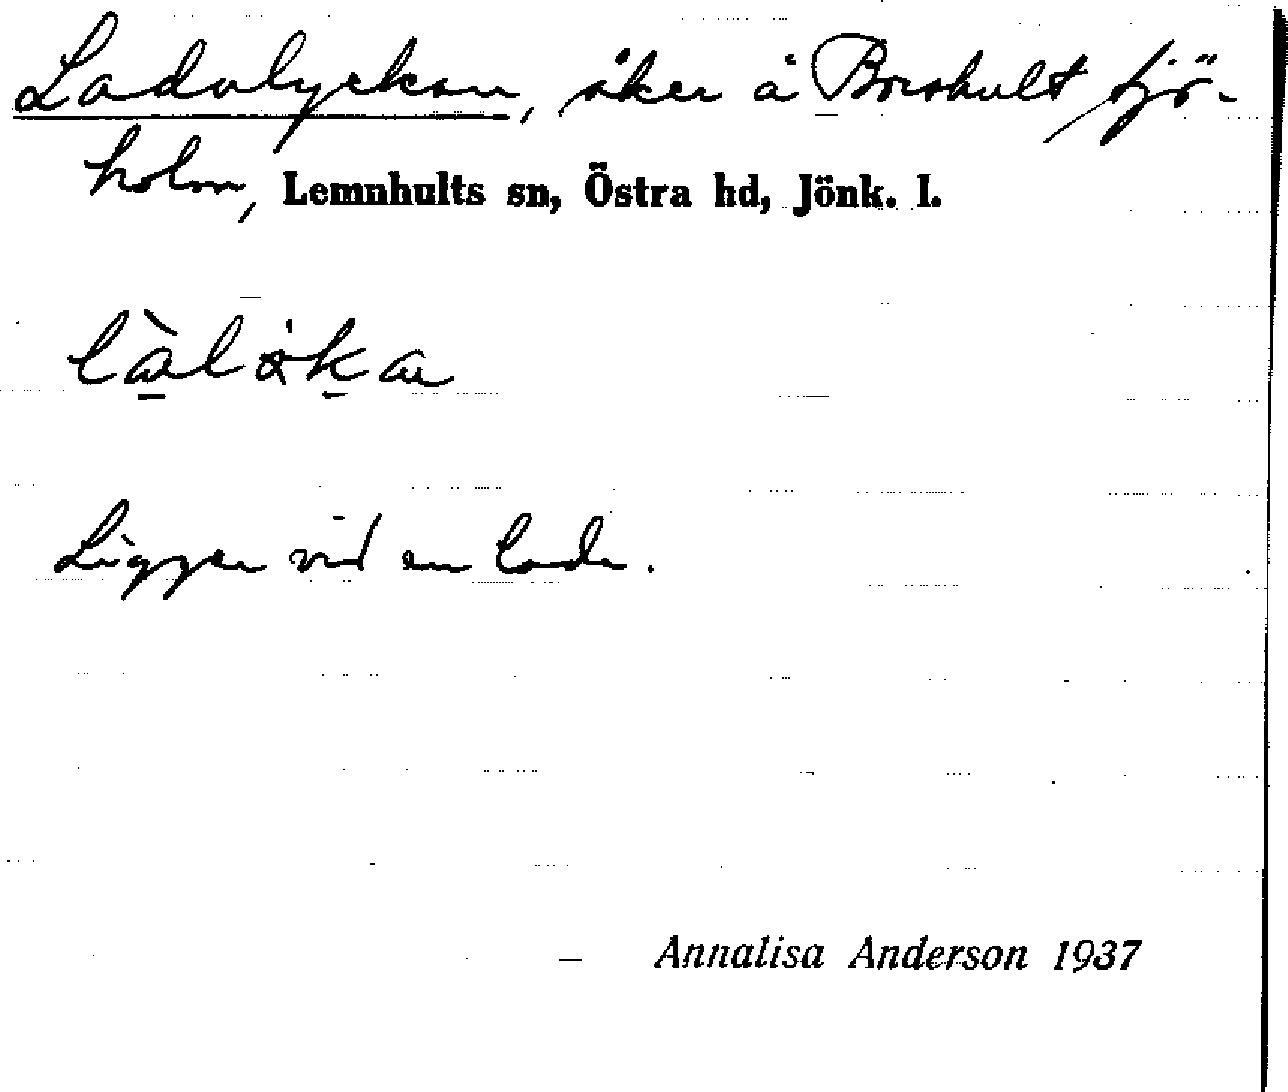 Ladulyckan, åker å Boeshult Sjö-
holm, Lemnhults sn, Östra hd, Jönk. l.
Ligger vid en lada.
Annalisa Anderson 1937